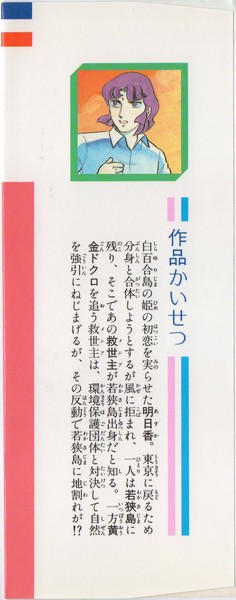 作品かいせつ
白百合島の姫の初恋を実らせた明日香。東京に戻るため
分身と合体しようとするが風に拒まれ、一人は若狭島に
残り、そこであの救世主が若狭島出身だと知る。一方黄
金ドクロを追う救世主は、環境保護団体と対決して自然
を強引にねじまげるが、その反動で若狭島に地割れが!?